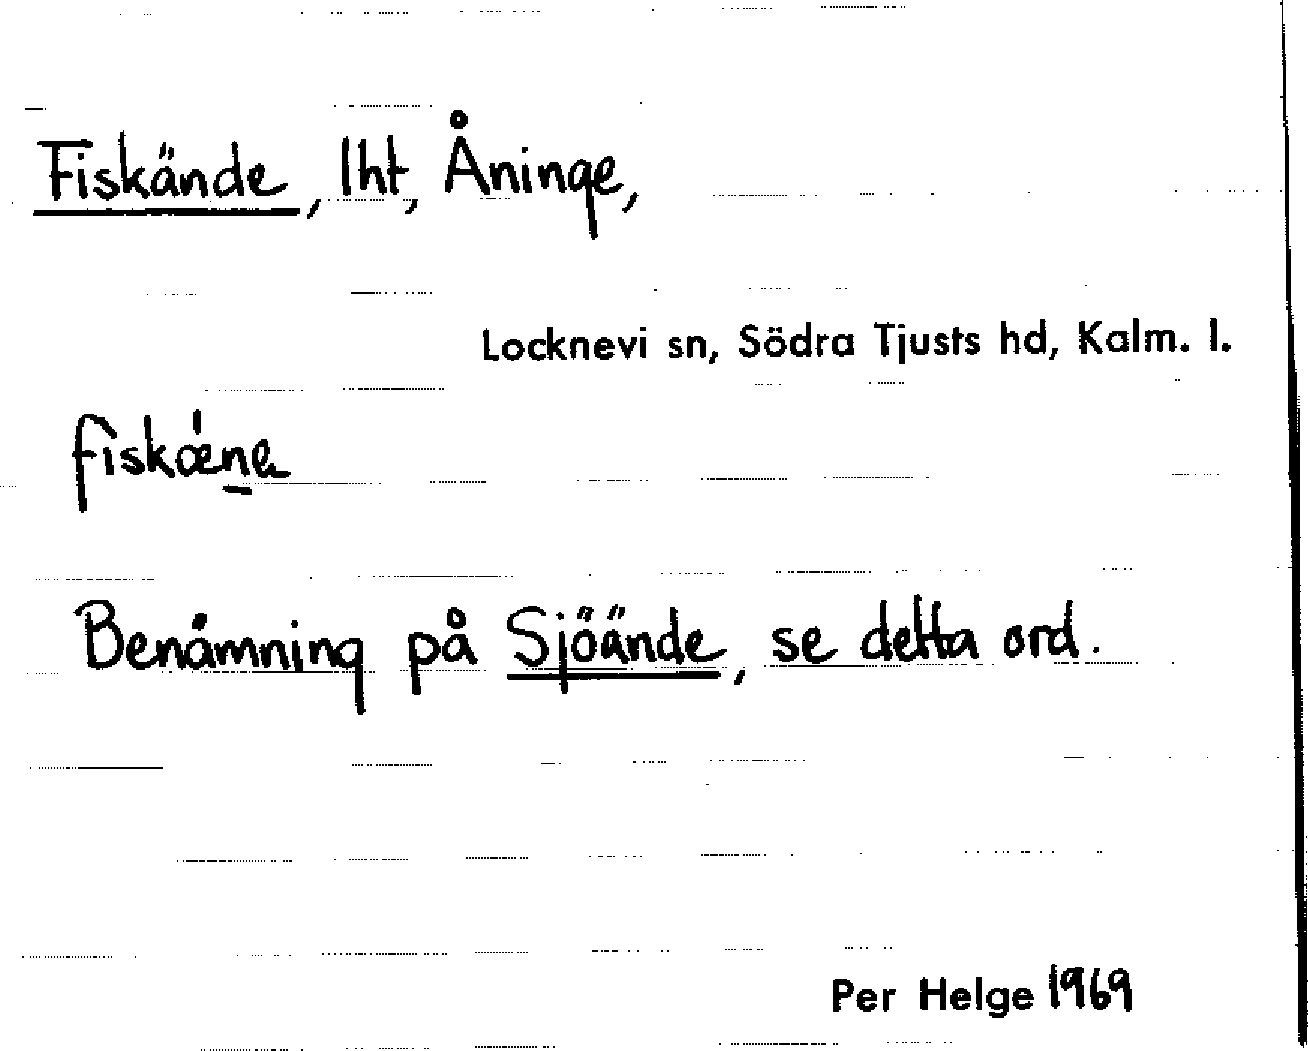 Fiskände, lht, Åninge,
Locknevi sn, Södra Tjusts hd, Kalm. l.
fiskǽna
Benämning på Sjöände, se detta ord.
Per Helge 1969